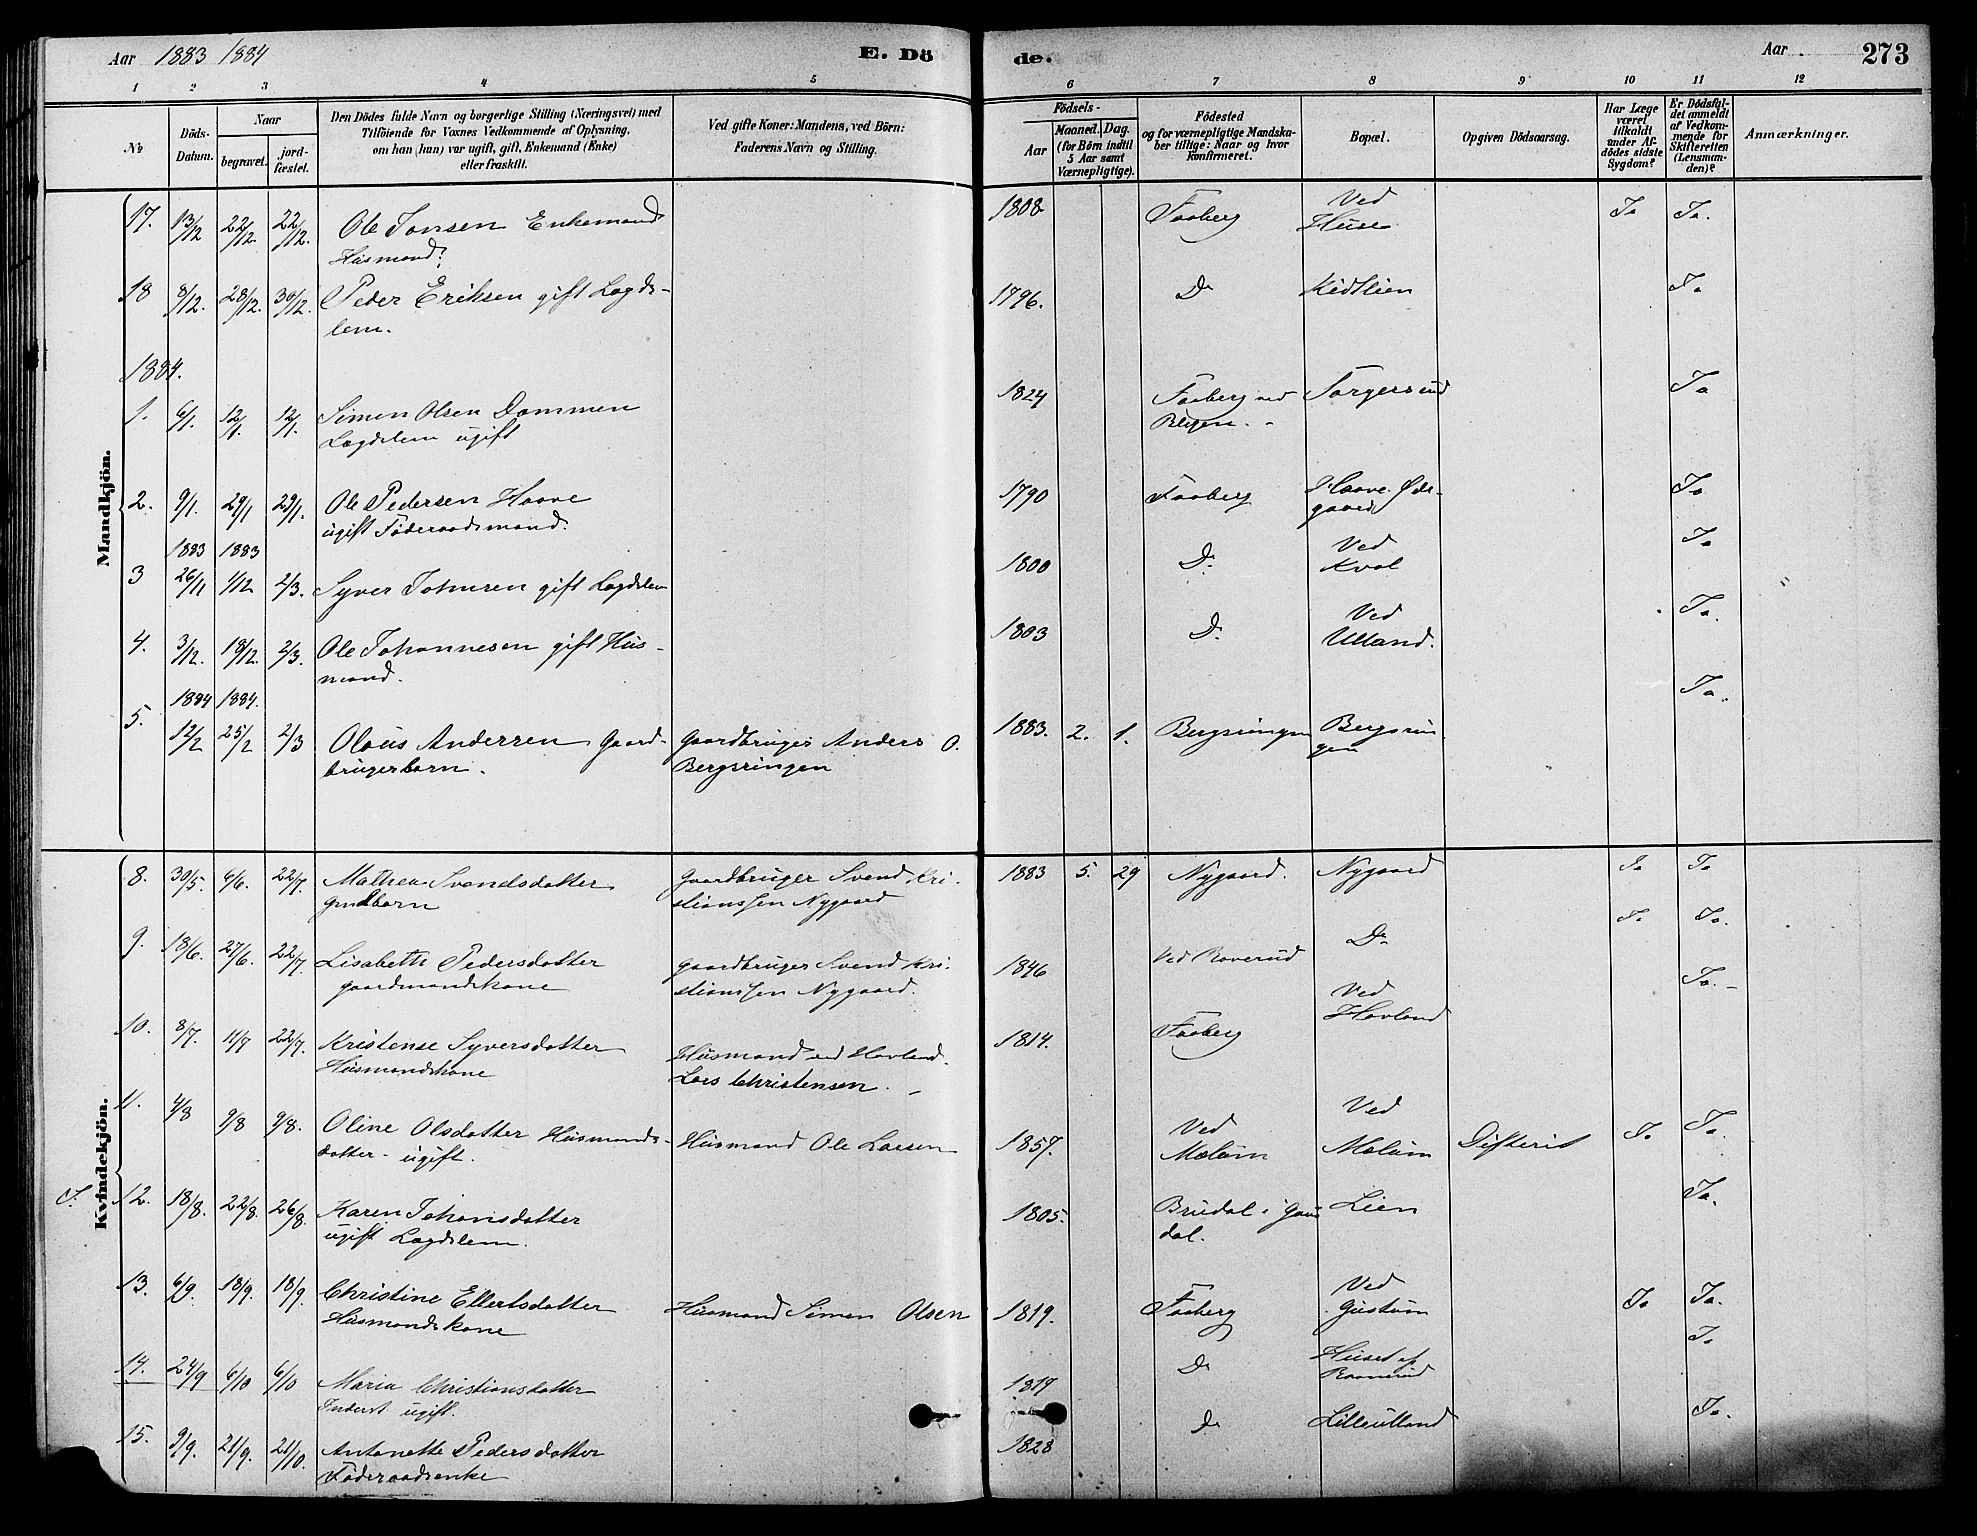 Aar 1883 1884
E. Dö
de.
Aar
273
1 2 3 4 5 6 7 8 9 10 11 12
№
Döds-
Datum.
Naar
begravet.
jord-
fæstet.
Den Dödes fulde Navn og borgerlige Stilling (Næringsvei) med
Tilföiende for Voxnes Vedkommende af Oplysning,
om han (hun) var ugift, gift, Enkemand (Enke)
eller fraskilt.
Ved gifte Koner: Mandens, ved Börn:
Faderens Navn og Stilling.
Födsels-
Aar
Maaned. Dag.
(for Börn indtil
5 Aar samt
Værnepligtige).
Födested
og for værnepligtige Mandska-
ber tillige: Naar og hvor
Konfirmeret.
Bopæl.
Opgiven Dödsaarsag.
Har Læge
været
tilkaldt
under Af-
dödes sidste
Sygdom?
Er Dödsfal-
det anmeldt
af Vedkom-
mende for
Skifteretten
(Lensman-
den)?
Anmærkninger.
Mandkjön.
17. 13/12 22/12. 22/12. Ole Jonsen Enkemand
Husmand. 1808 Faaberg Ved
Huse Ja Ja.
18 8/12. 28/12. 30/12. Peder Eriksen gift Lægds-
lem. 1796. Do Kidtlien Ja
1884.
1. 6/1. 12/1. 12/1. Simen Olsen Dammen
Lægdslem ugift 1824 Faaberg ved Torgersrud Ja
2. 9/1. 29/1 29/1. Ole Pedersen Haave
ugift Föderaadsmand. 1790 Faaberg Haave Øde-
gaard Ja
1883 1883
3 26/11 1/12 2/3. Syver Johnsen gift Lægdslem 1800 Do Ved
Kval Ja
4. 3/12. 18/12. 2/3. Ole Johannesen gift Hus-
mand. 1803 Do Ved
Ulland. Ja.
1884 1884.
5. 12/2 25/2 2/3 Olaus Andersen Gaard-
brugerbarn. Gaardbruger Anders O.
Bergsringen 1883. 2. 1. Bergsringen Bergsrin-
gen Ja.
Kvindekjön.
8. 30/5. 6/6. 22/7. Mathea Svendsdatter
gmdbarn Gaardbruger Svend Kri-
stianssen Nygaard 1883 5. 29 Nygaard. Nygaard Ja Ja
9. 18/6. 27/6. 22/7 Lisabeth Pedersdatter
gaardmandskone gaardbruger Svend Kri-
stianssen Nygaard. 1846 Ved Roverud Do Ja Ja.
10. 8/7. 11/7 22/7. Kristense Syversdatter
Husmandskone Husmand ved Hovland
Lars Christensen. 1814. Faaberg Ved
Hovland Ja.
11. 4/8 9/8 9/8. Oline Olsdatter Husmands-
datter - ugift. Husmand Ole Larsen 1857. Ved
Mælum Ved
Mælum Difterit Ja Ja.
J. 12. 18/8. 22/8. 26/8. Karen Johansdatter
ugift Lægdslem. 1805. Brudal i Gaus
dal. Lien Ja.
13. 6/9. 18/9. 18/9. Christine Ellertsdatter
Husmandskone Husmand Simen Olsen 1819. Faaberg Ved
Gustum Ja Ja.
14. 24/9 6/10 6/10 Maria Christiansdatter
Inderst ugift. 1819 Do Huset af
Ja
15. 9/9. 21/9. 21/10. Antonette Pedersdatter
Föderaadsenke 1828 Do Lilleulland Ja.